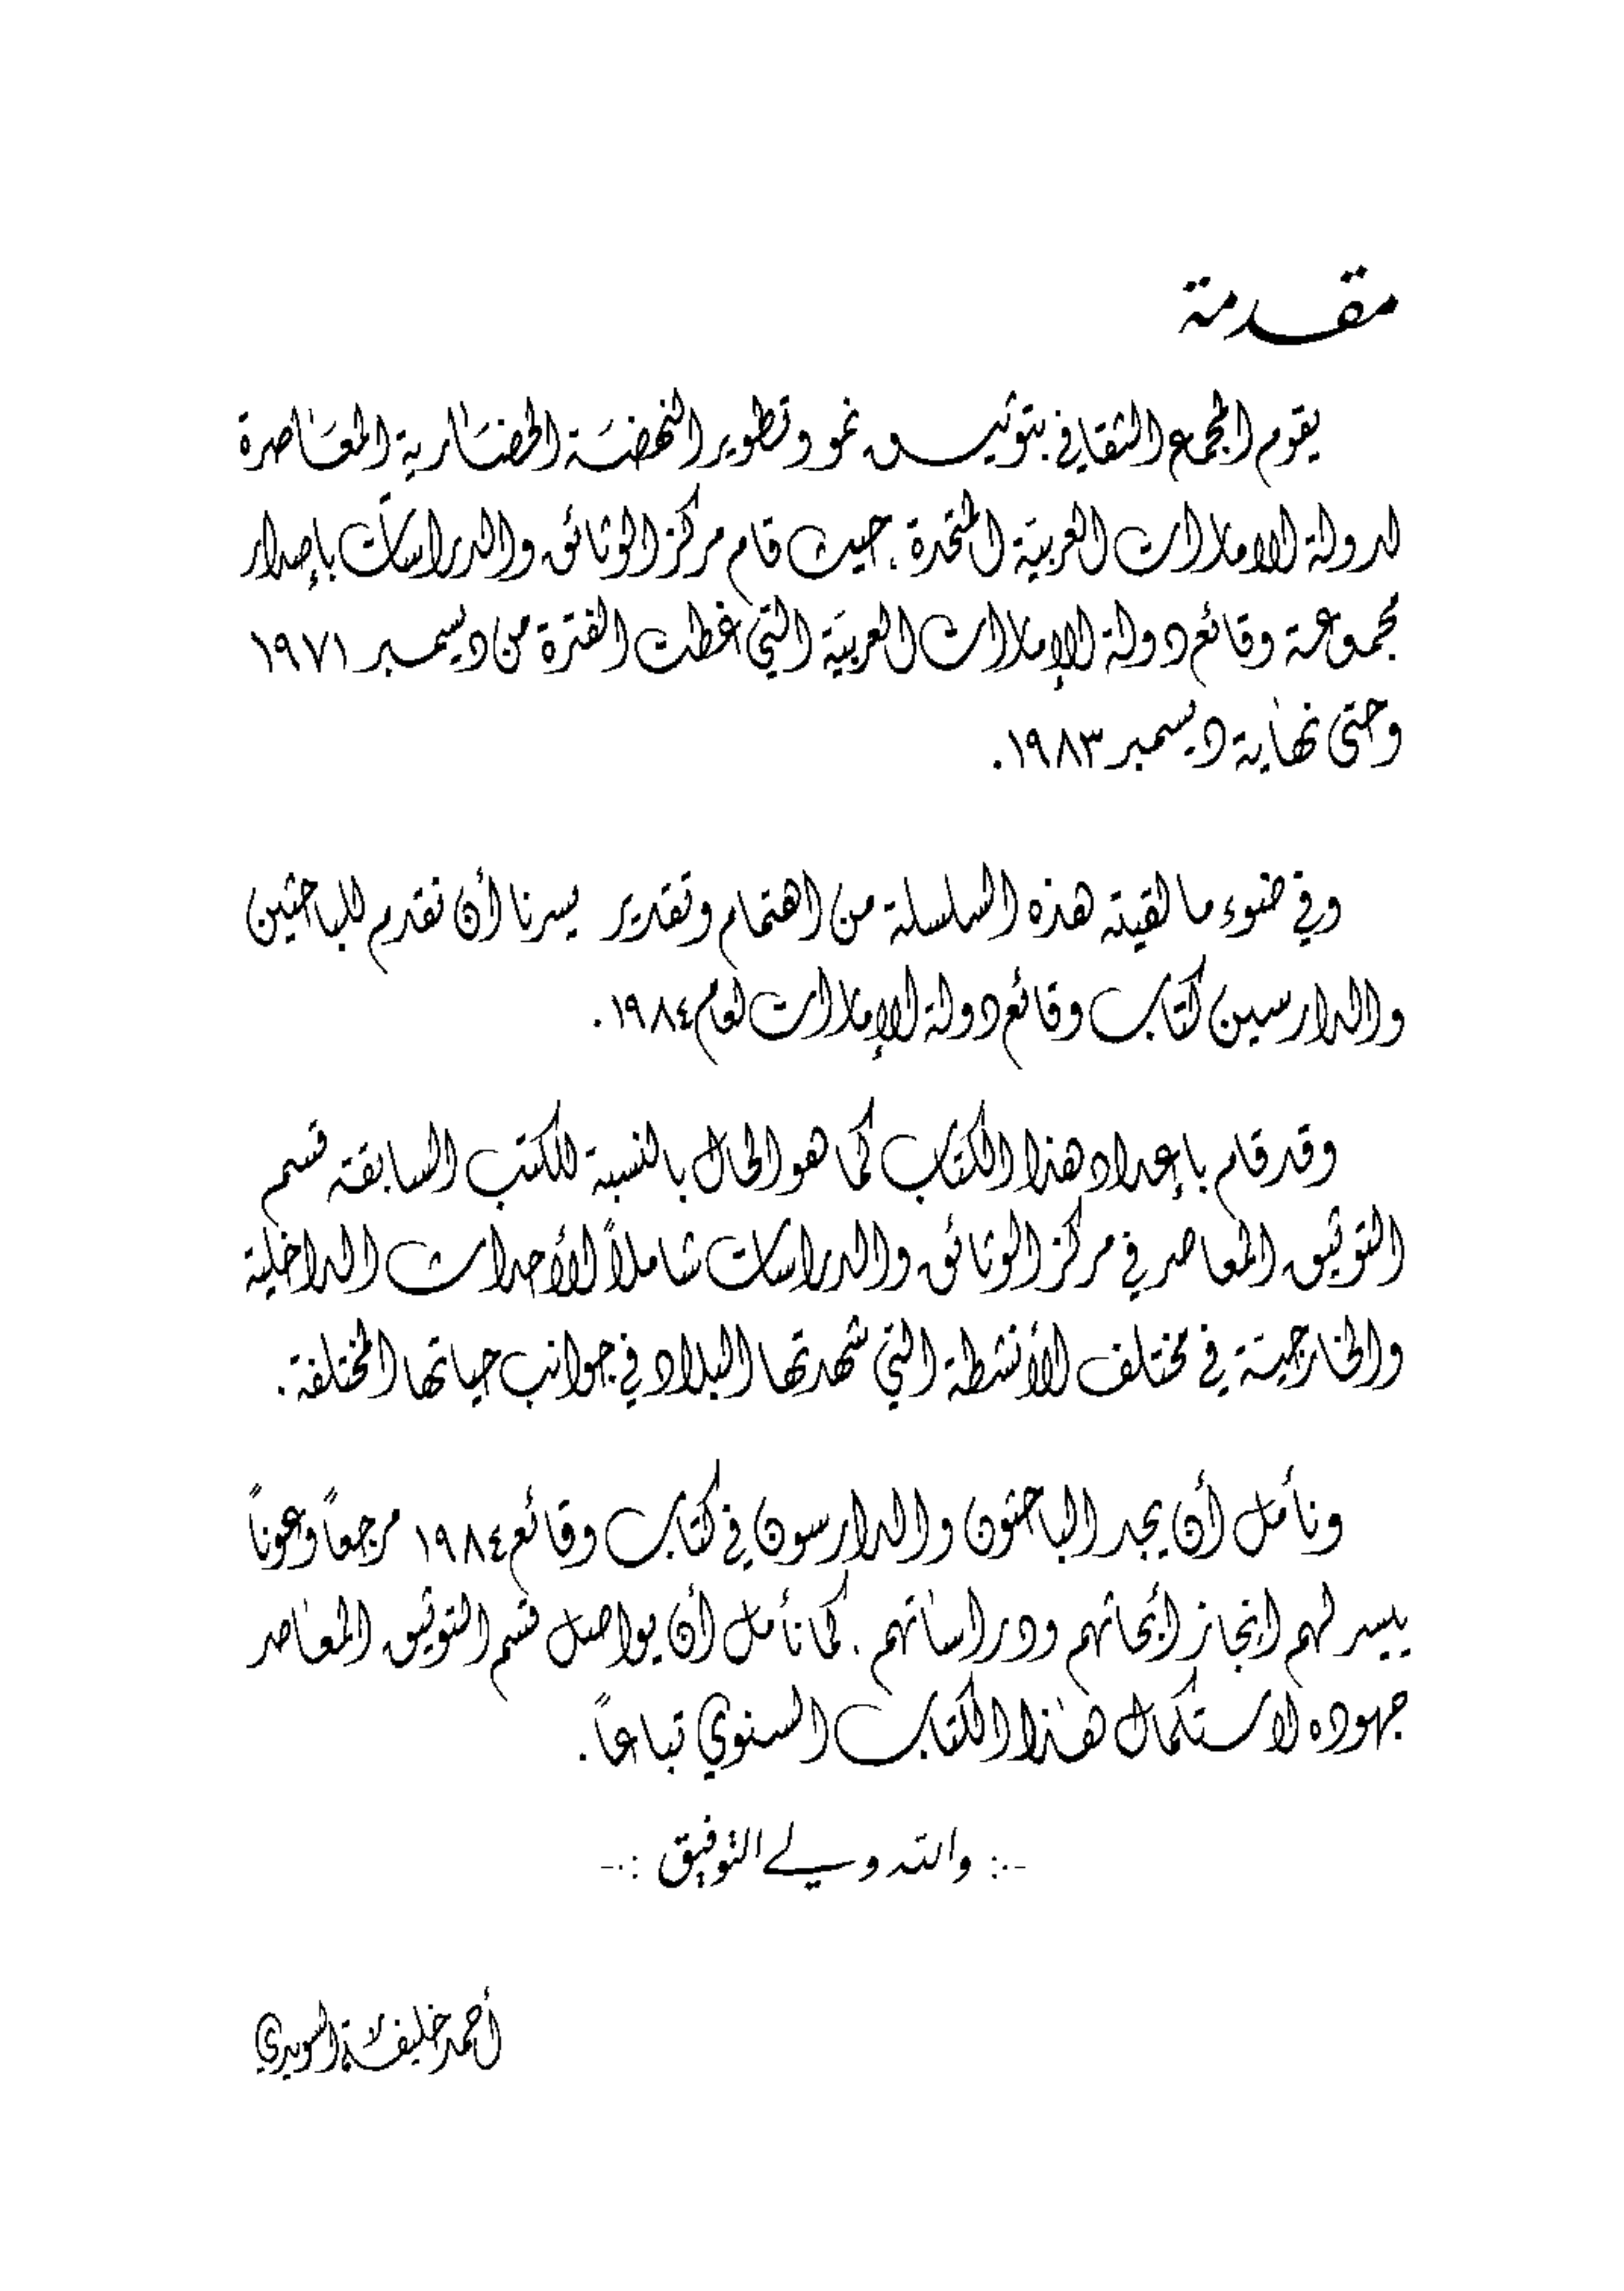 مقدمة
يقوم المجمع الثقافي بتوثيق نمو وتطوير النهضة الحضارية المعاصرة
لدولة الامارات العربية المتحدة، حيث قام مركز الوثائق والدراسات بإصدار
مجموعة وقائع دولة الإمارات العربية التي غطت الفترة من ديسمبر ١٩٧١
وحتى نهاية ديسمبر ١٩٨٣.
وفي ضوء ما لقيته هذه السلسلة من اهتمام وتقدير يسرنا أن نقدم للباحثين
والدارسين كتاب وقائع دولة الإمارات لعام ١٩٨٤.
وقد قام بإعداد هذا الكتاب كما هو الحال بالنسبة للكتب السابقة قسم
التوثيق المعاصر في مركز الوثائق والدراسات شاملاً للأحداث الداخلية
والخارجية في مختلف الأنشطة التي شهدتها البلاد في جوانب حياتها المختلفة.
ونأمل أن يجد الباحثون والدارسون في كتاب وقائع ١٩٨٤ مرجعاً وعوناً
ييسر لهم انجاز أبحاثهم ودراساتهم. كما نأمل أن يواصل قسم التوثيق المعاصر
جهوده لاستكمال هذا الكتاب السنوي تباعاً.
-:. والله ولي التوفيق :.-
أحمد خليفة السويدي